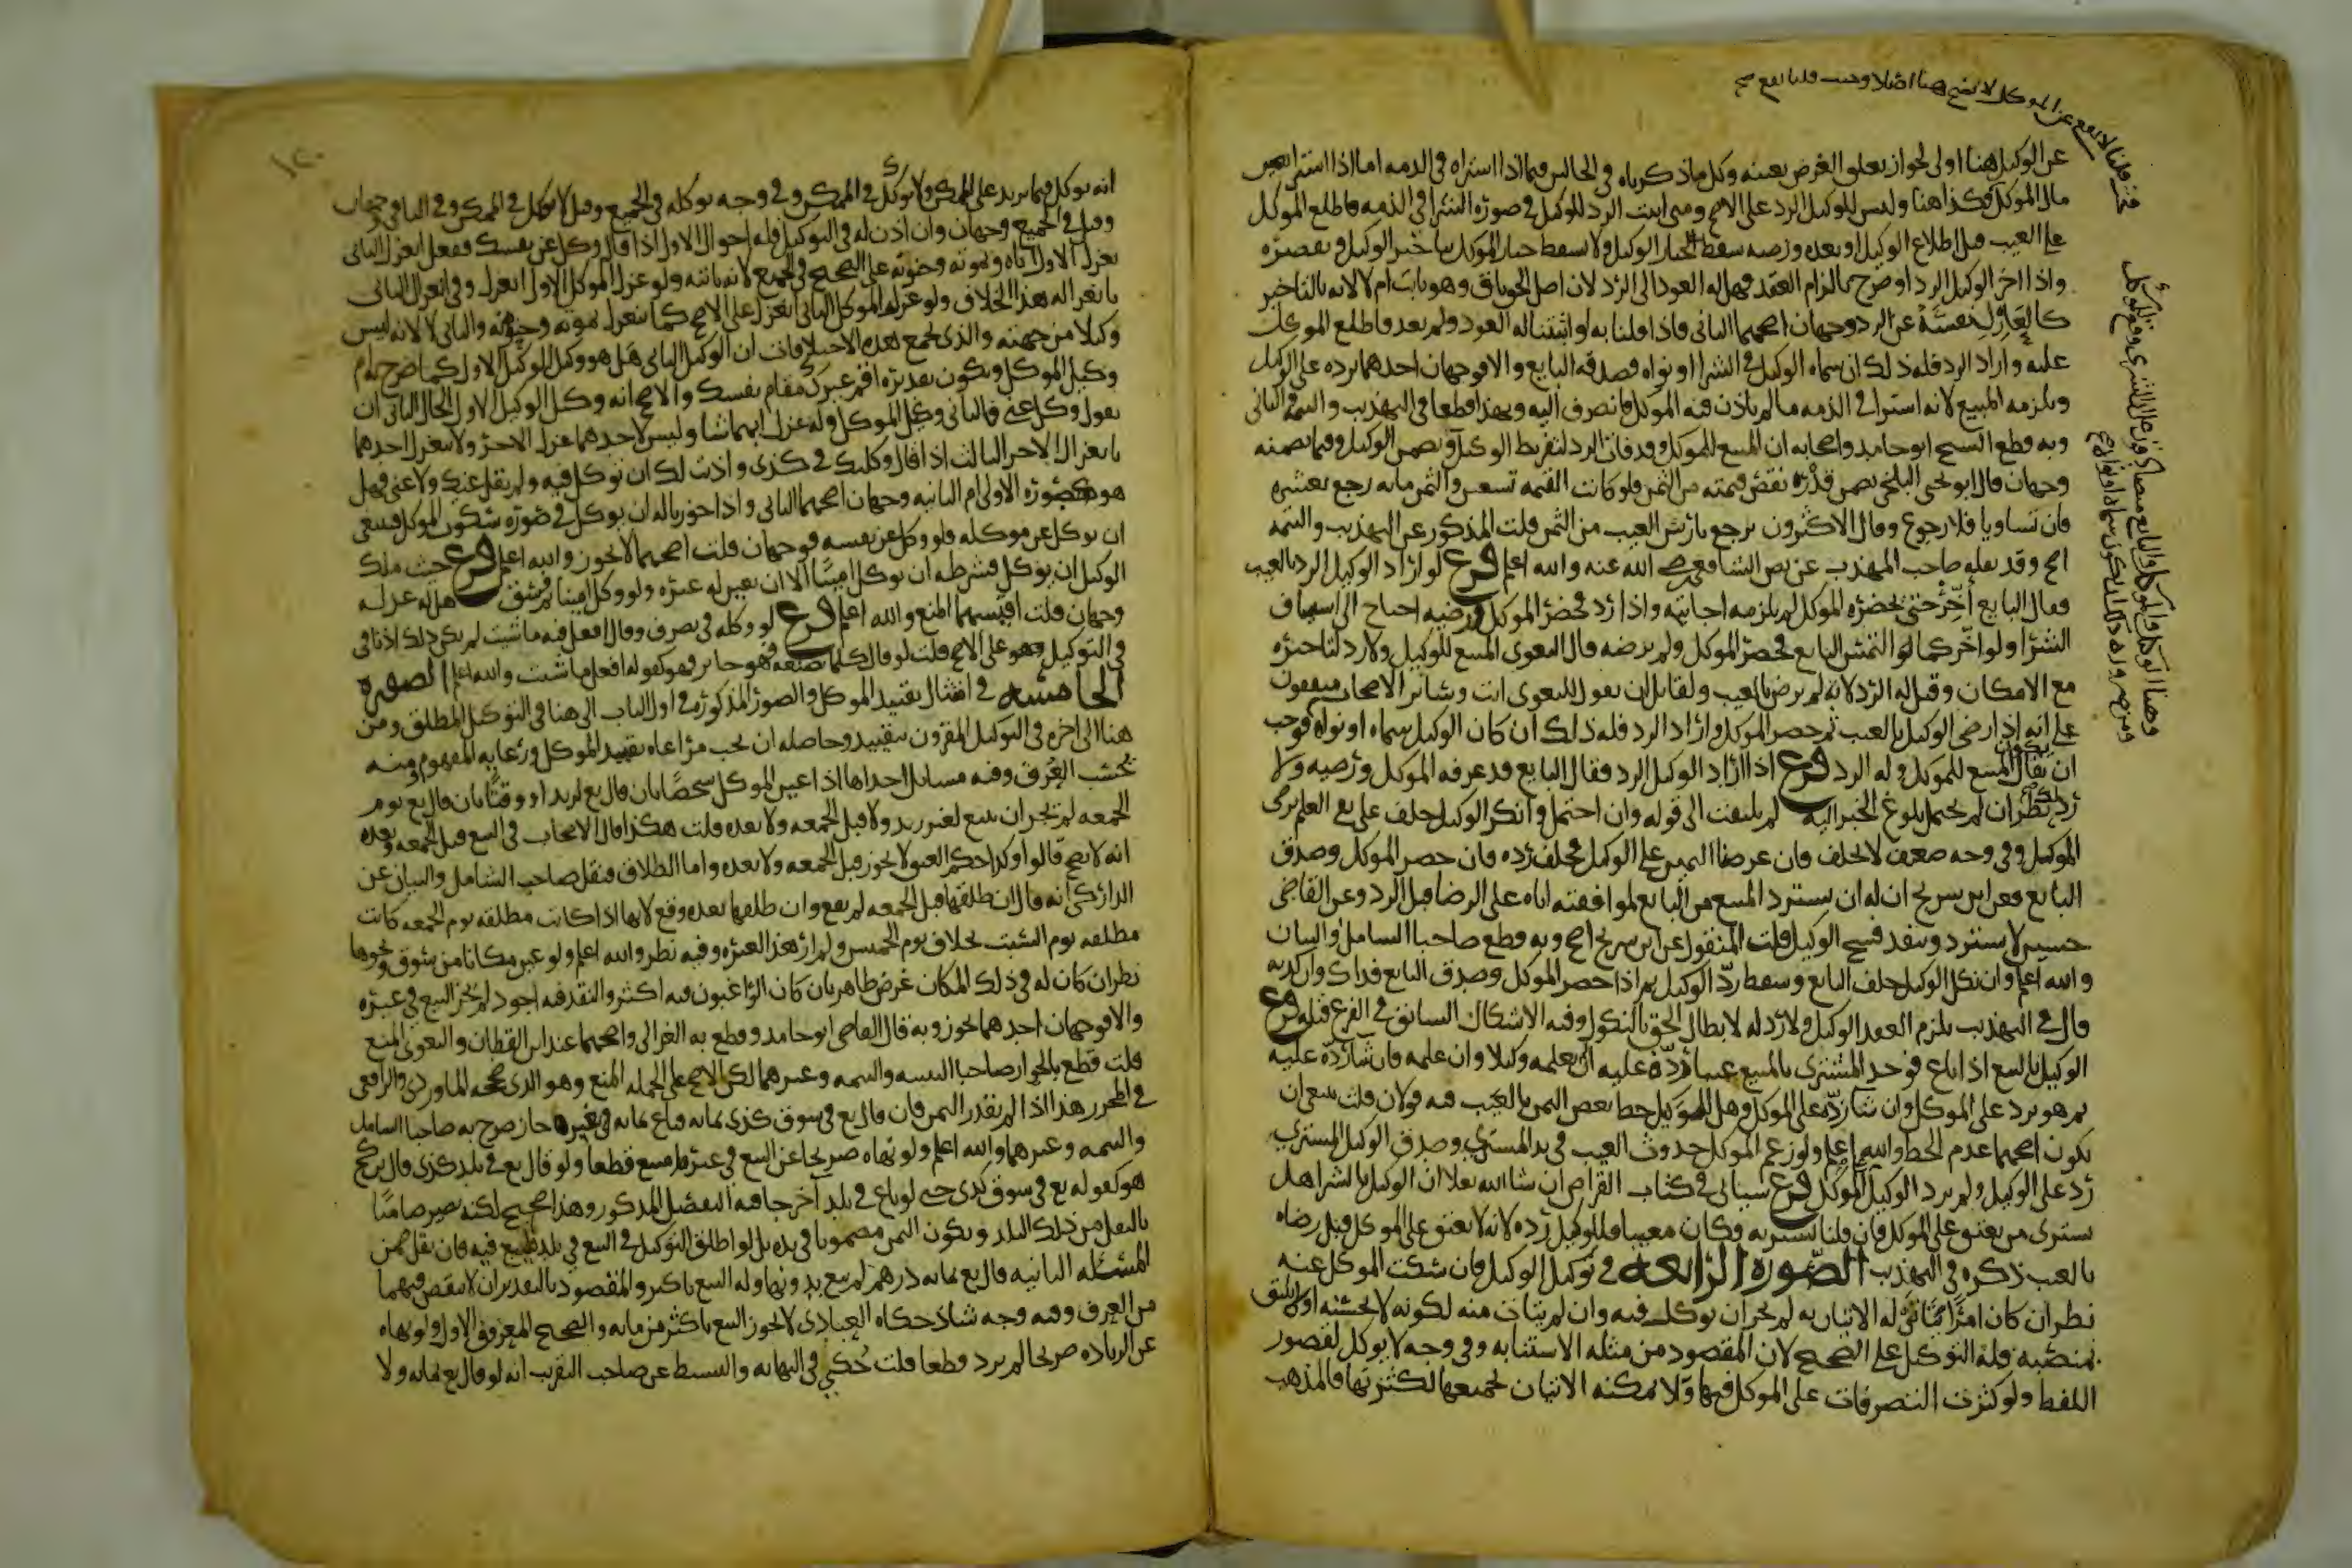 عن الوكيل هنا اولى لجواز تعلق الغرض بعينه وكل ما ذكرناه في الحالين فيما اذا اشتراه في الذمه اما اذا اشترى بعين
مال الموكل فكذا هنا وليس للوكيل الرد على الاصح ومتى ثبت الرد للوكيل في صورة الشرا في الذمه فاطلع الموكل
على العيب قبل اطلاع الوكيل او بعده ورضيه سقط خيار الوكيل ولا يسقط خيار الموكل بتاخير الوكيل وتقصيره
واذا اخر الوكيل الرد او صرح بالزام العقد فهل له العود الى الرد لان اصل الحق باق وهو نايب ام لا لانه بالتاخير
كالعازل نفسه عن الرد وجهان اصحهما الثاني فاذا قلنا به او اثبتنا له العود ولم يعد فاطلع الموكل
عليه واراد الرد فله ذلك ان سماه الوكيل في الشرا او نواه وصدقه البايع والا فوجهان احدهما يرده على الوكيل
ويلزمه المبيع لانه اشترا في الذمه ما لم ياذن فيه الموكل فانصرف اليه وبهذا قطعا في التهذيب والتتمة والثاني
وبه قطع الشيخ ابو حامد واصحابه ان المبيع للموكل وقد فات الرد لتفريط الوكيل ويضمن الوكيل وفيما يضمنه
وجهان قال ابو يحيى البلخي يضمن قدر نقص قيمته من الثمن فلو كانت القيمه تسعين والثمن مايه رجع بعشره
فان تساويا فلا رجوع وقال الاكثرون يرجع بارش العيب من الثمن قلت المذكور عن التهذيب والتتمه
اصح وقد نقله صاحب المهذب عن نص الشافعي رضي الله عنه والله اعلم فرع لو اراد الوكيل الرد بالعيب
فقال البايع أخّر حتى يحضر الموكل لم يلزمه اجابته واذا رد فحضر الموكل ورضيه احتاج الى استيناف
الشرا ولو اخّر كما التمس البايع فحضر الموكل ولم يرضه قال البغوي المبيع للوكيل ولا رد لتاخيره
مع الامكان وقيل له الرد لانه لم يرض بالعيب ولقايل ان يقول للبغوي انت وساير الاصحاب متفقون
على انه اذا رضي الوكيل بالعيب ثم حضر الموكل واراد الرد فله ذلك ان كان الوكيل سماه او نواه فوجب
ان يقال المبيع للموكل وله الرد فرع اذا اراد الوكيل الرد فقال البايع قد عرفه الموكل ورضيه ولا
رد لك نظر ان لم يحتمل بلوغ الخبر اليه لم يلتفت الى قوله وان احتمل وانكر الوكيل حلف على نفي العلم برضى
الموكل وفي وجه ضعيف لا يحلف فان عرضنا اليمين على الوكيل فحلف رده فان حضر الموكل وصدق
البايع فعن ابن سريج ان له ان يسترد المبيع من البايع لموافقته اياه على الرضا قبل الرد وعن القاضي
حسين لا يسترد وينفذ فسخ الوكيل قلت المنقول عن ابن سريج اصح وبه قطع صاحبا الشامل والبيان
والله اعلم وان نكل الوكيل حلف البايع وسقط ردّ الوكيل ثم اذا حضر الموكل وصدق البايع فذاك وان كذبه
قال في التهذيب يلزم العقد الوكيل ولا رد له لابطال الحق بالنكول وفيه الاشكال السابق في الفرع قبله فرع
الوكيل بالبيع اذا باع فوجد المشتري بالمبيع عيبا ردّه عليه ان لم يعلمه وكيلا وان علمه فان شا ردّه عليه
ثم هو يرد على الموكل وان شا ردّه على الموكل وهل للوكيل حط بعض الثمن بالعيب فيه قولان قلت ينبغي ان
يكون اصحهما عدم الحط والله اعلم ولو زعم الموكل حدوث العيب في يد المشتري وصدق الوكيل المشتري
رد على الوكيل ولم يرد الوكيل على الموكل فرع سياتي في كتاب القراض ان شا الله تعالى ان الوكيل بالشرا هل
يشتري من يعتق على الموكل فان قلنا يشتريه وكان معيبا فللوكيل رده لانه لا يعتق على الموكل قبل رضاه
بالعيب ذكره في التهذيب الصورة الرابعه في توكيل الوكيل فان سكت الموكل عنه
نظر ان كان امرا يتاتى له الاتيان به لم يجز ان يوكل فيه وان لم يتات منه لكونه لا يحسنه او لا يليق
بمنصبه فله التوكيل على الصحيح لان المقصود من مثله الاستنابه وفي وجه لا يوكل لقصور
اللفظ ولو كثرت التصرفات على الموكل فيها ولا يمكنه الاتيان بجميعها لكثرتها فالمذهب
انه يوكل فيما يزيد على الممكن ولا يوكل في الممكن وفي وجه يوكله في الجميع وقيل لا يوكل في الممكن وفي الباقي وجهان
وقيل في الجميع وجهان وان اذن له في التوكيل فله احوال الاول اذا قال وكل عن نفسك ففعل انعزل الثاني
بعزل الاول اياه وبموته وجنونه على الصحيح في الجميع لانه نايبه ولو عزل الموكل الاول انعزل وفي انعزال الثاني
بانعزاله هذا الخلاف ولو عزل الموكل الثاني انعزل على الاصح كما ينعزل بموته وجنونه والثاني لا لانه ليس
وكيلا من جهته والذي يجمع هذه الاختلافات ان الوكيل الثاني هل هو وكيل للوكيل الاول كما صرح به ام
وكيل الموكل ويكون تقديره اقم غيرك مقام نفسك والاصح انه وكيل الوكيل الاول الحال الثاني ان
يقول وكل عني فالثاني وكيل الموكل وله عزل ايهما شا وليس لاحدهما عزل الاخر ولا ينعزل احدهما
بانعزال الاخر الثالث اذا قال وكلتك في كذى واذنت لك ان توكل فيه ولم يقل عنك ولا عني فهل
هو كصورة الاولى ام الثانيه وجهان اصحهما الثاني واذا جوزنا له ان يوكل في صورة سكوت الموكل فينبغي
ان يوكل عن موكله فلو وكل عن نفسه فوجهان قلت اصحهما لا يجوز والله اعلم فرع حيث ملك
الوكيل ان يوكل فشرطه ان يوكل امينا الا ان يعين له غيره ولو وكل امينا ثم فسق هل له عزله
وجهان قلت اقيسهما المنع والله اعلم فرع لو وكله في تصرف وقال افعل فيه ما شيت لم يكن ذلك اذنا في
في التوكيل وهو على الاصح قلت لو قال كلما تصنعه فهو جايز فهو كقوله افعل ما شيت والله اعلم الصوره
الخامسه في امتثال تقييد الموكل والصور المذكورة في اول الباب الى هنا في التوكيل المطلق ومن
هنا الى اخره في التوكيل المقرون بتقييد وحاصله ان يجب مراعاه تقييد الموكل ورعايه المفهوم منه
بحسب العرف وفيه مسايل احداها اذا عين الموكل شخصا بان قال بع لزيد او وقتا بان قال بع يوم
الجمعه لم يجز ان يبيع لغير زيد ولا قبل الجمعه ولا بعده قلت هكذا قال الاصحاب في البيع قبل الجمعه وبعده
انه لا يصح قالوا وكذا حكم العتق لا يجوز قبل الجمعه ولا بعده واما الطلاق فنقل صاحب الشامل والبيان عن
الداركي انه قال ان طلقها قبل الجمعه لم يقع وان طلقها بعده وقع لانها اذا كانت مطلقه يوم الجمعه كانت
مطلقه يوم السبت بخلاف يوم الخميس ولم ار هذا لغيره وفيه نظر والله اعلم ولو عين مكانا من سوق ونحوها
نظر ان كان له في ذلك المكان غرض ظاهر بان كان الراغبون فيه اكثر والنقد فيه اجود لم يجز البيع في غيره
والا فوجهان احدهما يجوز وبه قال القاضي ابو حامد وقطع به الغزالي واصحهما عند ابن القطان والبغوي المنع
قلت قطع بالجواز صاحبا التنبيه والتتمه وغيرهما لكن الاصح على الجمله المنع وهو الذي صححه الماوردي والرافعي
في المحرر هذا اذا لم يقدر الثمن فان قال بع في سوق كذى بمايه فباع بمايه في غيره جاز صرح به صاحبا الشامل
والتتمه وغيرهما والله اعلم ولو نهاه صريحا عن البيع في غيره امتنع قطعا ولو قال بع في بلد كذى قال ابن كج
هو كقوله بع في سوق كذى حتى لو باع في بلد آخر جا فيه التفصيل المذكور وهذا صحيح لكنه يصير ضامنا
بالنقل من ذلك البلد ويكون الثمن مضمونا في يده بل لو اطلق التوكيل في البيع في بلد فليبع فيه فان نقل ضمن
المسئله الثانيه قال بع بمايه درهم لم يبع بدونها وله البيع باكثر والمقصود بالتقدير ان لا ينقص فيهما
من العرف وفيه وجه شاذ حكاه العبادي لا يجوز البيع باكثر من مايه والصحيح المعروف الاول ولو نهاه
عن الزياده صريحا لم يزد قطعا قلت حُكي في النهايه والبسيط عن صاحب التقريب انه لو قال بع بمايه ولا